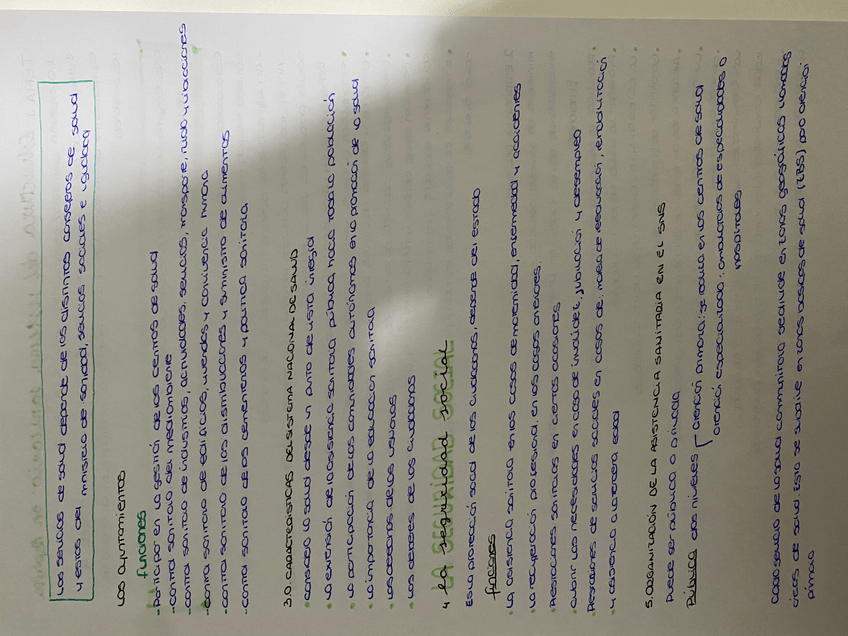 Los servicios de salud depende de los distintos consejeros de salud
y estos del ministerio de sanidad, servicios sociales e igualdad
Los ayuntamientos
funciones
-Participar en la gestión de los centros de salud
-control sanitario del medioambiente
-control sanitario de industrias, actividades, servicios, transporte, ruido, vibraciones
-control sanitario de edificios, viviendas y convivencia humana
-control sanitario de los distribuciones y suministro de alimentos
-control sanitario de los cementerios y política sanitaria
3.0. CARACTERISTICAS DEL SISTEMA NACIONAL DE SALUD
• considera la salud desde un punto de vista integral
• La extensión de la asistencia sanitaria pública hacia toda la población
• La participación de las comunidades autónomas en la promoción de la salud
• La importancia de la educación sanitaria
• Los derechos de los usuarios
• Los deberes de los ciudadanos
4 la seguridad social
LA SEGURIDAD SOCIAL
Es la protección social de los ciudadanos, depende del estado
funciones
• La asistencia sanitaria en los casos de maternidad, enfermedad y accidentes
• La recuperación profesional, en los casos anteriores
• Prestaciones sanitarias en ciertas ocasiones
• cubrir las necesidades en caso de invalidez, jubilación y desempleo
• Prestaciones de servicios sociales en casos de materia de reeducación, rehabilitación
• y asistencia a la tercera edad
5. ORGANIZACIÓN DE LA ASISTENCIA SANITARIA EN EL SNS
Puede ser pública o privada
Pública: dos niveles
atención primaria: se realiza en los centros de salud
atención especializada: ambulatorios de especialidades o
hospitales
Cada servicio de la salud comunitaria se divide en zonas geográficas llamadas
áreas de salud. Esta se subdivide en zonas básicas de salud (ZBS) para atención
primaria